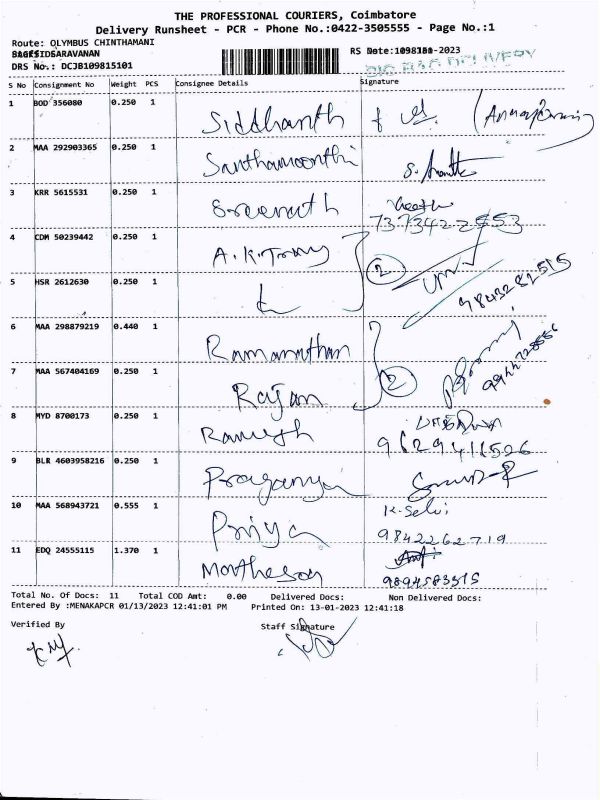 THE PROFESSIONAL COURIERS, Coimbatore
Delivery Runsheet - PCR - Phone No.:0422-3505555 - Page No.:1
Route: OLYMBUS CHINTHAMANI
SARAVANAN
RS Date: -2023
DRS No.: DCJB109815101
S No Consignment No Weight PCS Consignee Details Signature
1 BOD 356080 0.250 1 Siddhanth
2 MAA 292903365 0.250 1 Santhamoorthi
3 KRR 5615531 0.250 1 Sreenath
7373422553
4 CDM 50239442 0.250 1 A.K.Tromy 2
5 HSR 2612630 0.250 1 9843282515
6 MAA 298879219 0.440 1 Ramanathan
7 MAA 567404169 0.250 1 Rajan 2
8 MYD 8700173 0.250 1 Ramesh
9629411526
9 BLR 4603958216 0.250 1 Praganya
10 MAA 568943721 0.555 1 Priya K. Selvi
9842262719
11 EDQ 24555115 1.370 1
9894583515
Total No. Of Docs: 11 Total COD Amt: 0.00 Delivered Docs: Non Delivered Docs:
Entered By :MENAKAPCR 01/13/2023 12:41:01 PM Printed On: 13-01-2023 12:41:18
Verified By Staff Signature